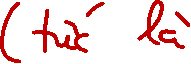 ( tức là